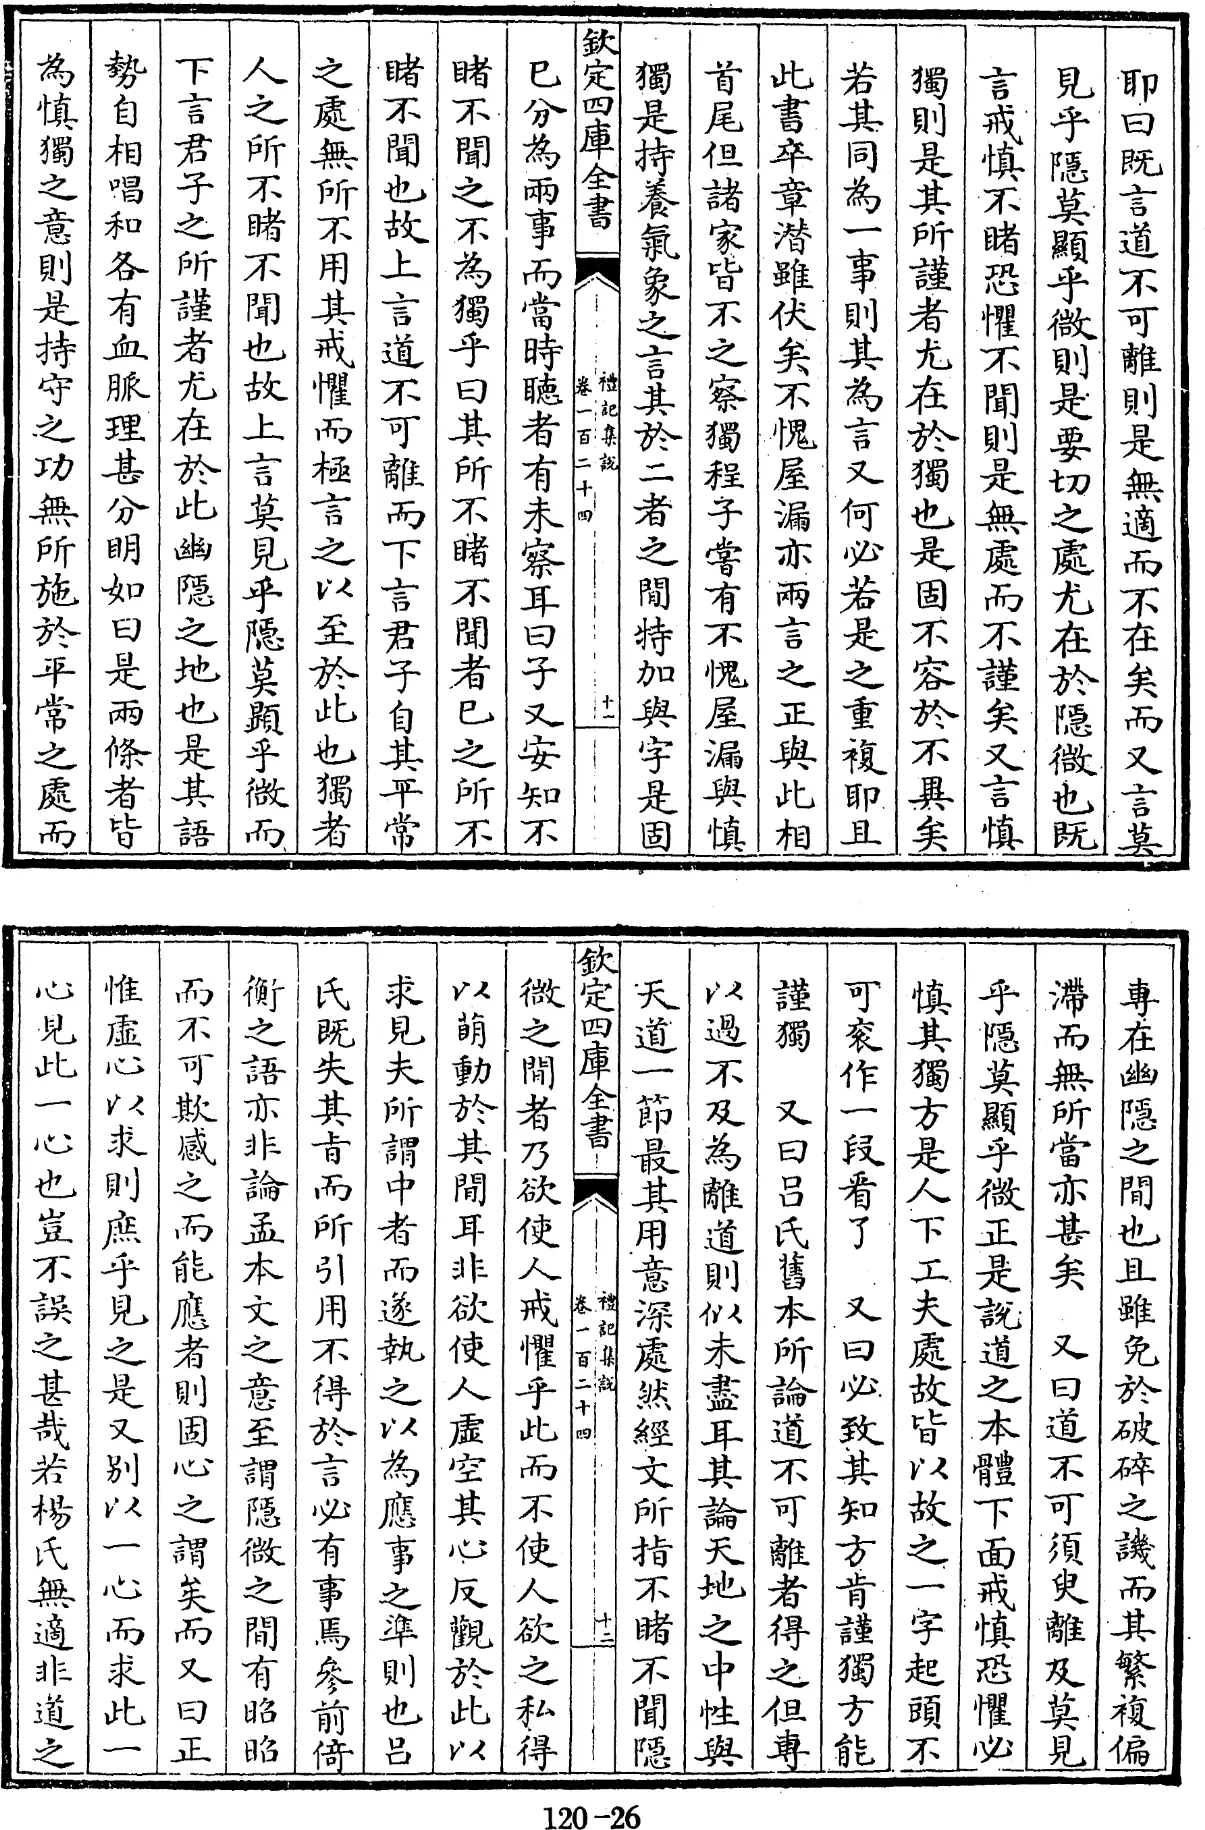 耶曰既言道不可離則是無適而不在矣而又言莫
見乎隱莫顯乎微則是要切之處尤在於隱微也既
言戒慎不睹恐懼不聞則是無處而不謹矣又言慎
獨則是其所謹者尤在於獨也是固不容於不異矣
若其同為一事則其為言又何必若是之重複耶且
此書卒章潜雖伏矣不愧屋漏亦兩言之正與此相
首尾但諸家皆不之察獨程子嘗有不愧屋漏與慎
獨是持養氣象之言其於二者之間特加與字是固
欽定四庫全書
禮記集說
卷一百二十四
十一
已分為兩事而當時聽者有未察耳曰子又安知不
睹不聞之不為獨乎曰其所不睹不聞者已之所不
睹不聞也故上言道不可離而下言君子自其平常
之處無所不用其戒懼而極言之以至於此也獨者
人之所不睹不聞也故上言莫見乎隱莫顯乎微而
下言君子之所謹者尤在於此幽隱之地也是其語
勢自相唱和各有血脈理甚分明如曰是兩條者皆
為慎獨之意則是持守之功無所施於平常之處而
專在幽隱之間也且雖免於破碎之譏而其繁複偏
滯而無所當亦甚矣 又曰道不可須臾離及莫見
乎隱莫顯乎微正是說道之本體下面戒慎恐懼必
慎其獨方是人下工夫處故皆以故之一字起頭不
可衮作一段看了 又曰必致其知方肯謹獨方能
謹獨 又曰吕氏舊本所論道不可離者得之但專
以過不及為離道則似未盡耳其論天地之中性與
天道一節最其用意深處然經文所指不睹不聞隱
欽定四庫全書
禮記集說
卷一百二十四
十二
微之間者乃欲使人戒懼乎此而不使人欲之私得
以萌動於其間耳非欲使人虛空其心反觀於此以
求見夫所謂中者而遂執之以為應事之準則也吕
氏既失其㫖而所引用不得於言必有事焉參前倚
衡之語亦非論孟本文之意至謂隱微之間有昭昭
而不可欺感之而能應者則固心之謂矣而又曰正
惟虛心以求則庶乎見之是又别以一心而求此一
心見此一心也豈不誤之甚哉若楊氏無適非道之
120-26